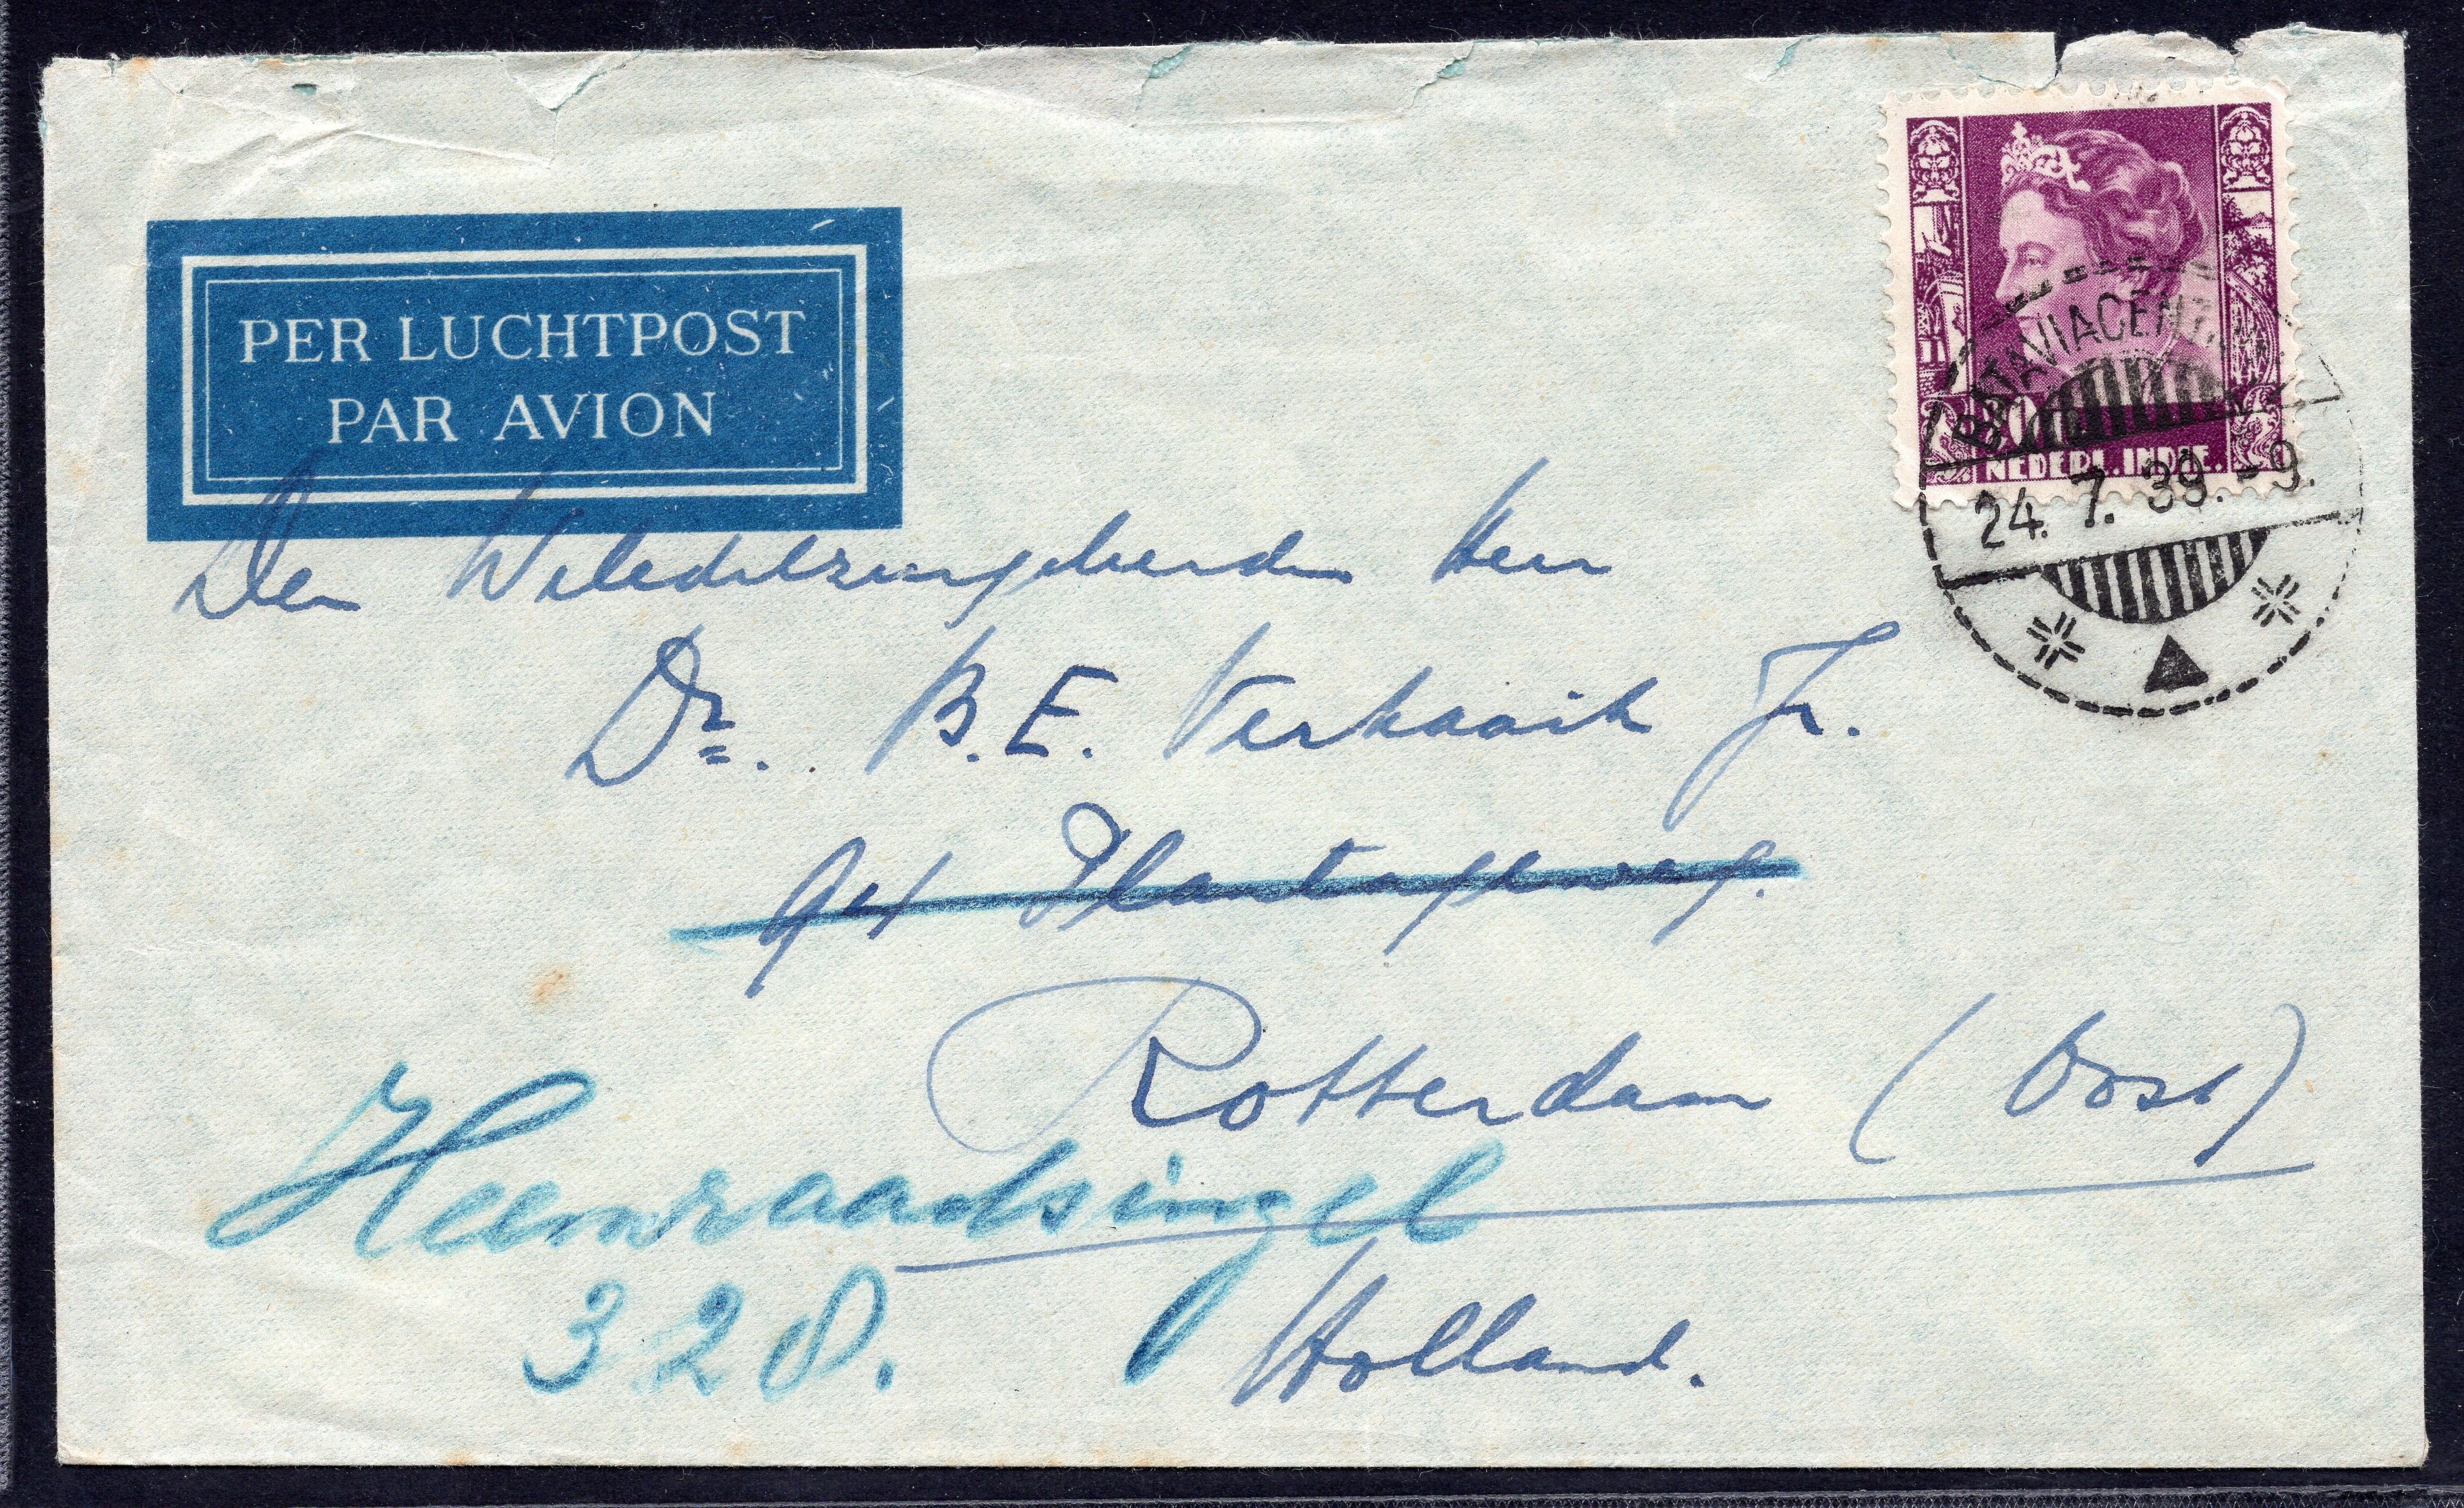 PER LUCHTPOST
PAR AVION
NEDERL. INDIE.
BATAVIACENTRUM
24. 7. 39. - 9.
Den Weledelzeergeleerden Heer
Dr. B. E. Verkaaik Jr.
Plantageweg.
Rotterdam (Oost)
Heemraadsingel
328.
Holland.